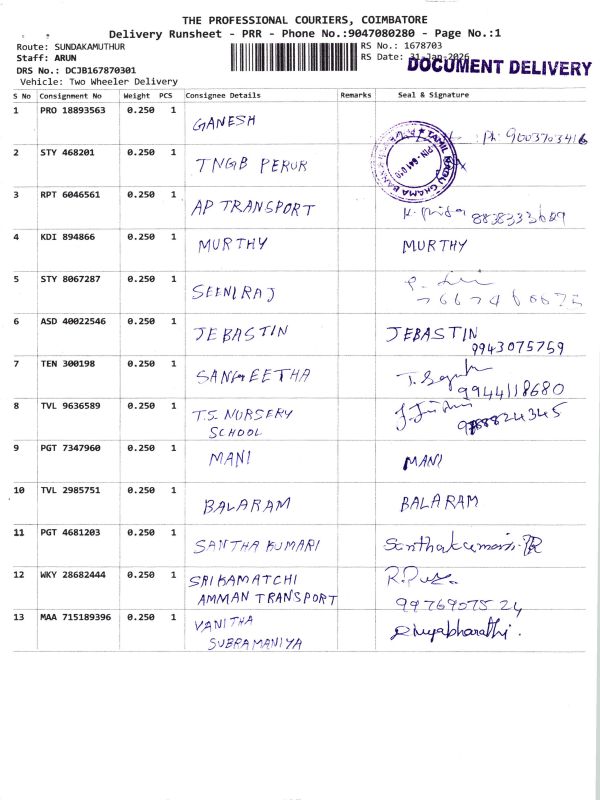 THE PROFESSIONAL COURIERS, COIMBATORE
Delivery Runsheet - PRR - Phone No.:9047080280 - Page No.:1
Route: SUNDAKAMUTHUR
RS No.: 1678703
Staff: ARUN
RS Date: 31-Jan-2026
DOCUMENT DELIVERY
DRS No.: DCJB167870301
Vehicle: Two Wheeler Delivery
S No Consignment No Weight PCS Consignee Details Remarks Seal & Signature
1 PRO 18893563 0.250 1 GANESH Ph: 9003703416
TAMIL NADU GRAMA BANK
PIN-641010
2 STY 468201 0.250 1 TNGB PERUR
3 RPT 6046561 0.250 1 AP TRANSPORT
4 KDI 894866 0.250 1 MURTHY MURTHY
5 STY 8067287 0.250 1 SEENIRAJ
6 ASD 40022546 0.250 1 JEBASTIN JEBASTIN
9943075759
7 TEN 300198 0.250 1 SANGEETHA
9944118680
8 TVL 9636589 0.250 1 T.S. NURSERY
SCHOOL
9 PGT 7347960 0.250 1 MANI MANI
10 TVL 2985751 0.250 1 BALARAM BALARAM
11 PGT 4681203 0.250 1 SANTHA KUMARI Santhakumari
12 WKY 28682444 0.250 1 SRI KAMATCHI
AMMAN TRANSPORT
9976907524
13 MAA 715189396 0.250 1 VANITHA Divyabharathi.
SUBRAMANIYA